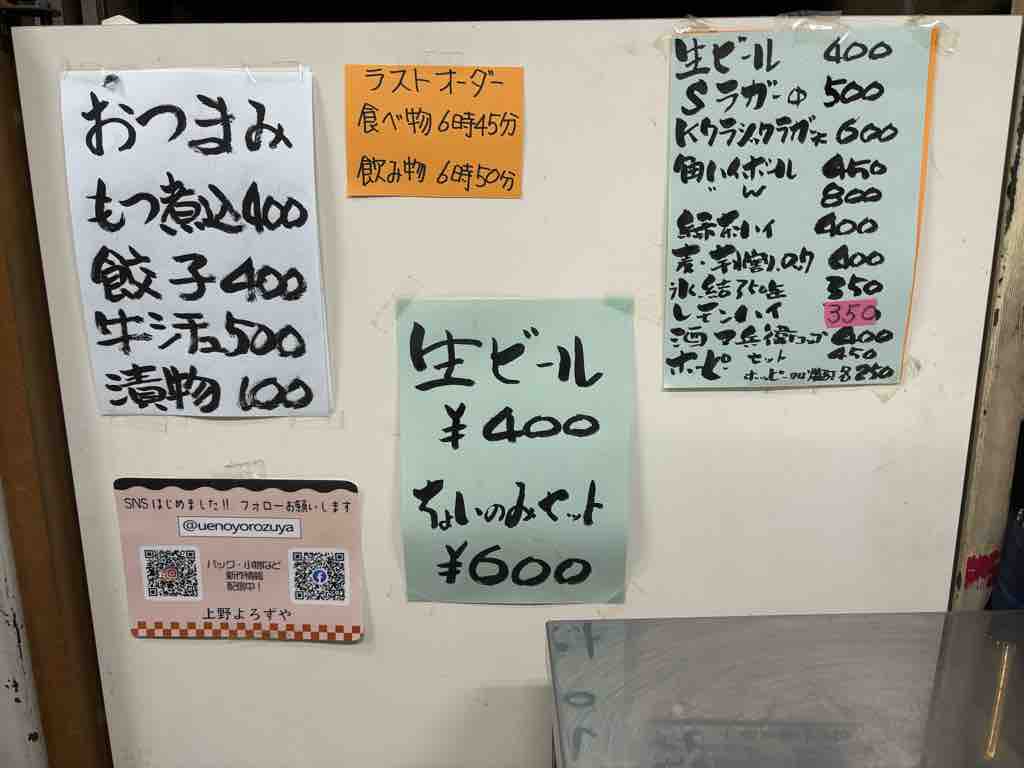 おつまみ
もつ煮込400
餃子400
500
漬物 100
ラストオーダー
食べ物 6時45分
飲み物 6時50分
生ビール 400
Sラガー中 500
Kクラシックラガー 600
角ハイボール 450
〃 W 800
緑茶ハイ 400
麦・芋 水割り、ロック 400
氷結 350
レモンハイ 350
酒 400
ホッピ セット 450
250
生ビール
¥400
ちょいのみセット
¥600
SNSはじめました!! フォローお願いします
@uenoyorozuya
バック・小物など
新作情報
配信中!
上野よろずや